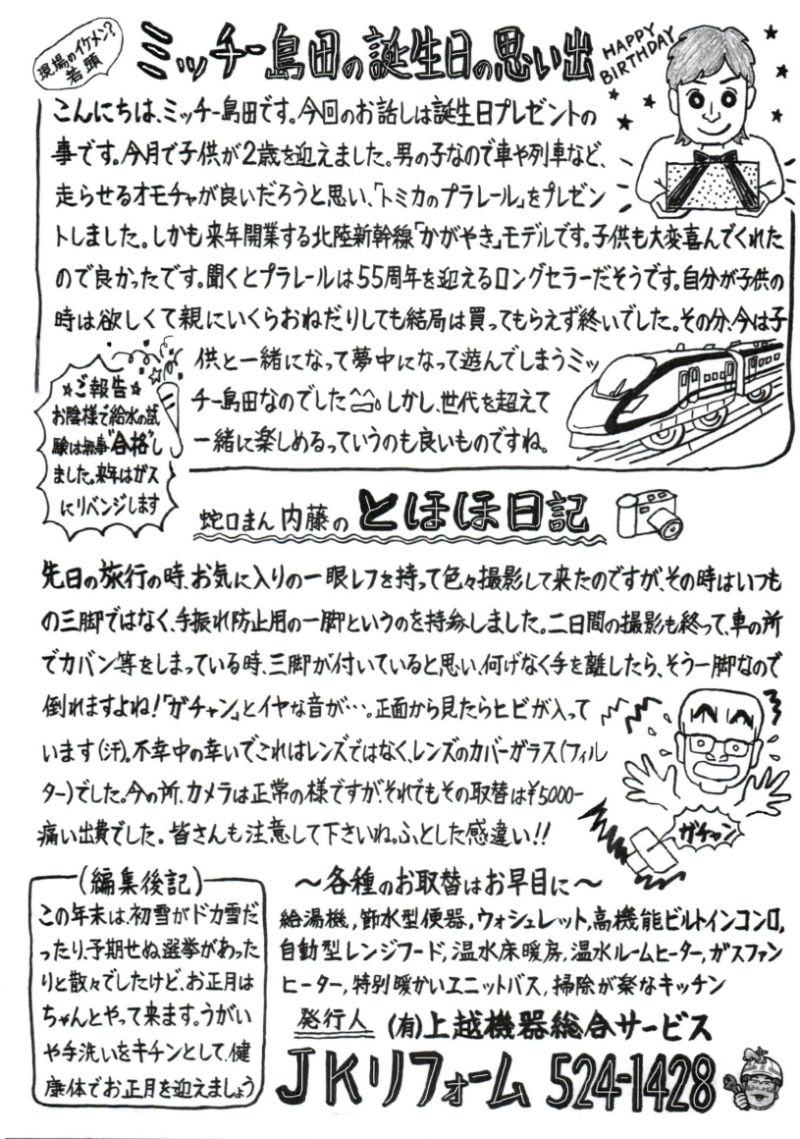 現場のイケメン?
若頭
ミッチー島田の誕生日の思い出
HAPPY
BIRTHDAY
こんにちは、ミッチー島田です。今回のお話しは誕生日プレゼントの
事です。今月で子供が2歳を迎えました。男の子なので車や列車など、
走らせるオモチャが良いだろうと思い、「トミカのプラレール」をプレゼン
トしました。しかも来年開業する北陸新幹線「かがやき」モデルです。子供も大変喜んでくれた
ので良かったです。聞くとプラレールは55周年を迎えるロングセラーだそうです。自分が子供の
時は欲しくて親にいくらおねだりしても結局は買ってもらえず終いでした。その分、今は子
供と一緒になって夢中になって遊んでしまうミッ
チー島田なのでした^^。しかし、世代を超えて
一緒に楽しめるっていうのも良いものですね。
☆ご報告☆
お陰様で給水の試
験は無事"合格"し
ました。来年はガス
にリベンジします
蛇口まん 内藤の とほほ日記
先日の旅行の時、お気に入りの一眼レフを持って色々撮影して来たのですが、その時はいつも
の三脚ではなく、手振れ防止用の一脚というのを持参しました。二日間の撮影も終って、車の所
でカバン等をしまっている時、三脚が付いていると思い、何げなく手を離したら、そう一脚なので
倒れますよね!「ガチャン」とイヤな音が…。正面から見たらヒビが入って
います(汗)。不幸中の幸いでこれはレンズではなく、レンズのカバーガラス(フィル
ター)でした。今の所、カメラは正常の様ですが、それでもその取替は¥5000-
痛い出費でした。皆さんも注意して下さいね。ふとした感違い!!
ガチャン
(編集後記)
この年末は、初雪がドカ雪だ
ったり、予期せぬ選挙があった
りと散々でしたけど、お正月は
ちゃんとやって来ます。うがい
や手洗いをキチンとして、健
康体でお正月を迎えましょう
～各種のお取替はお早目に～
給湯機,節水型便器,ウォシュレット,高機能ビルトインコンロ,
自動型レンジフード,温水床暖房,温水ルームヒーター,ガスファン
ヒーター,特別暖かいユニットバス,掃除が楽なキッチン
発行人 (有)上越機器総合サービス
JKリフォーム 524-1428